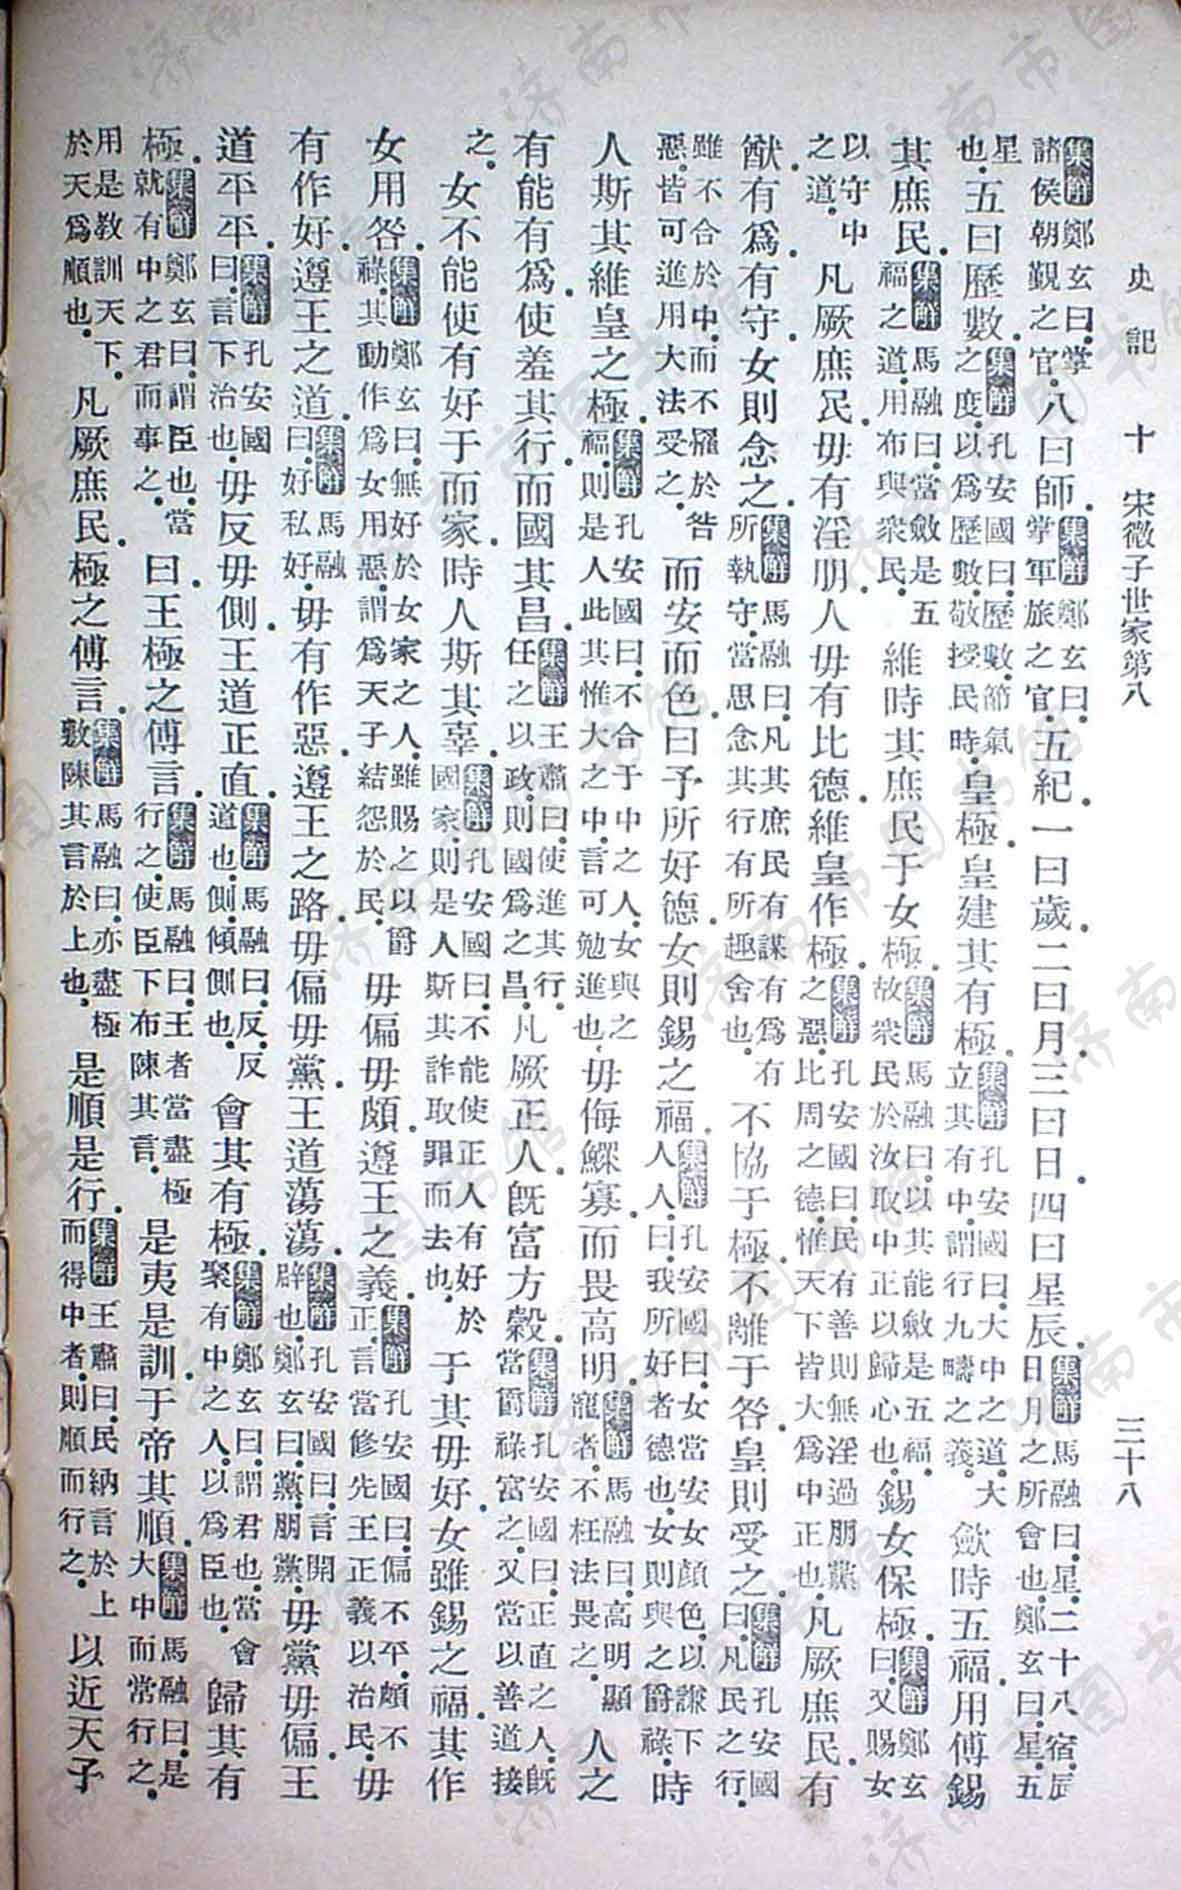 史記 十 宋微子世家第八 三十八
集解鄭玄曰掌諸侯朝覲之官。八曰師。集解鄭玄曰。掌軍旅之官。五紀。一曰歲。二曰月。三曰日。四曰星辰。集解馬融曰。星二十八宿。辰日月之所會也。鄭玄曰。星五
星也。五曰歷數。集解孔安國曰。歷數節氣之度。以爲歷數。敬授民時。皇極。皇建其有極。集解孔安國曰。大中之道。大立其有中。謂行九疇之義。歛時五福。用傅錫
其庶民。集解馬融曰。當斂是五福之道。用布與衆民。維時其庶民于女極。集解馬融曰。以其能斂是五福。故衆民於汝取中正以歸心也。錫女保極。集解鄭玄曰。又賜女
以守中之道。凡厥庶民。毋有淫朋。人毋有比德。維皇作極。集解孔安國曰。民有善則無淫過朋黨之惡。比周之德。惟天下皆大爲中正也。凡厥庶民。有
猷有爲。有守。女則念之。集解馬融曰。凡其庶民有謀有爲有所執守。當思念其行有所趣舍也。不協于極。不離于咎。皇則受之。集解孔安國曰。凡民之行。
雖不合於中。而不罹於咎惡。皆可進用大法受之。而安而色。曰予所好德。女則錫之福。集解孔安國曰。女當安女顏色。以謙下人。人曰。我所好者德也。女則與之爵祿。時
人斯其維皇之極。集解孔安國曰。不合于中之人。女與之福。則是人此其惟大之中。言可勉進也。毋侮鰥寡。而畏高明。集解馬融曰。高明顯寵者。不枉法畏之。人之
有能有爲。使羞其行。而國其昌。集解王肅曰。使進其行。任之以政。則國爲之昌。凡厥正人。旣富方穀。集解孔安國曰。正直之人。旣當爵祿富之。又當以善道接
之。女不能使有好于而家。時人斯其辜。集解孔安國曰。不能使正人有好於國家。則是人斯其詐取罪而去也。于其毋好。女雖錫之福。其作
女用咎。集解鄭玄曰。無好於女家之人。雖賜之以爵祿。其動作爲女用惡。謂爲天子結怨於民。毋偏毋頗。遵王之義。集解孔安國曰。偏不平。頗不正。言當修先王正義以治民。毋
有作好。遵王之道。集解馬融曰。好私好。毋有作惡。遵王之路。毋偏毋黨。王道蕩蕩。集解孔安國曰。言開辟也。鄭玄曰。黨。朋黨。毋黨毋偏。王
道平平。集解孔安國曰。言下治也。毋反毋側。王道正直。集解馬融曰。反。反道也。側。傾側也。會其有極。集解鄭玄曰。謂君也。當會聚有中之人。以爲臣也。歸其有
極。集解鄭玄曰。謂臣也。當就有中之君而事之。曰。王極之傅言。集解馬融曰。王者當盡極行之。使臣下布陳其言。是夷是訓。于帝其順。集解馬融曰。是大中而常行之。
用是教訓天下。於天爲順也。凡厥庶民。極之傅言。集解馬融曰。亦盡極敷陳其言於上也。是順是行。集解王肅曰。民納言於上而得中者。則順而行之。以近天子